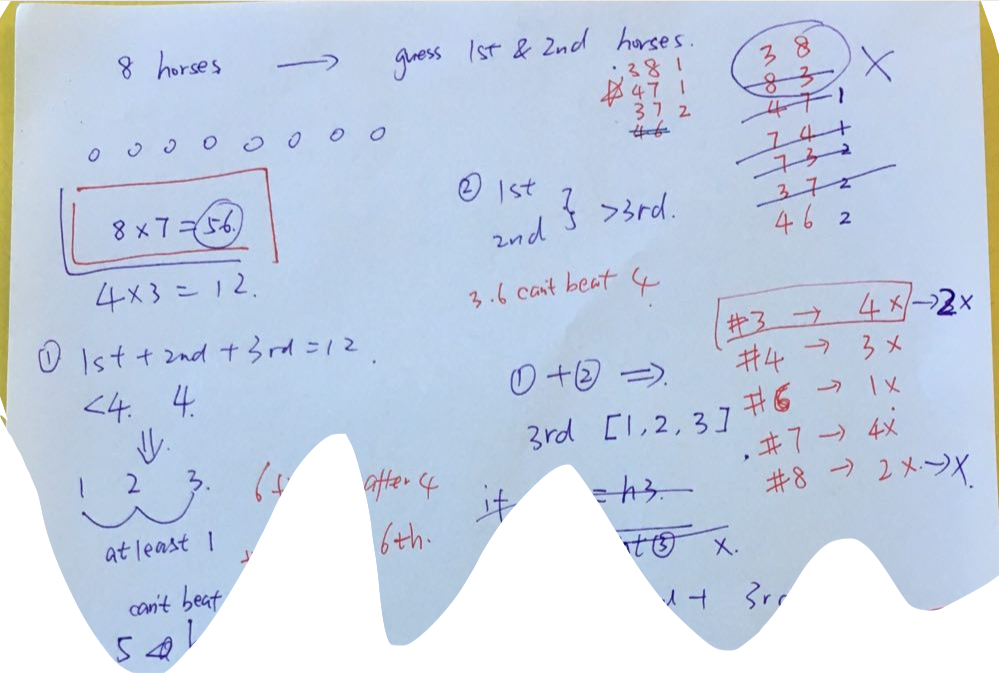 8 horses → guess 1st & 2nd horses.
3 8 1
4 7 1
3 7 2
4 6
3 8 X
8 3
4 7 1
7 4 1
7 3 2
3 7 2
4 6 2
o o o o o o o o
8 × 7 = 56
4 × 3 = 12.
② 1st
2nd } > 3rd.
3.6 can't beat 4
① 1st + 2nd + 3rd = 12.
<4. 4.
⇓
1 2 3.
at least 1
can't beat
5
① + ② ⇒
3rd [1, 2, 3]
#3 → 4x → 2x
#4 → 3x
#6 → 1x
#7 → 4x
#8 → 2x. → X.
after 4
6th.
if = h3.
③ X.